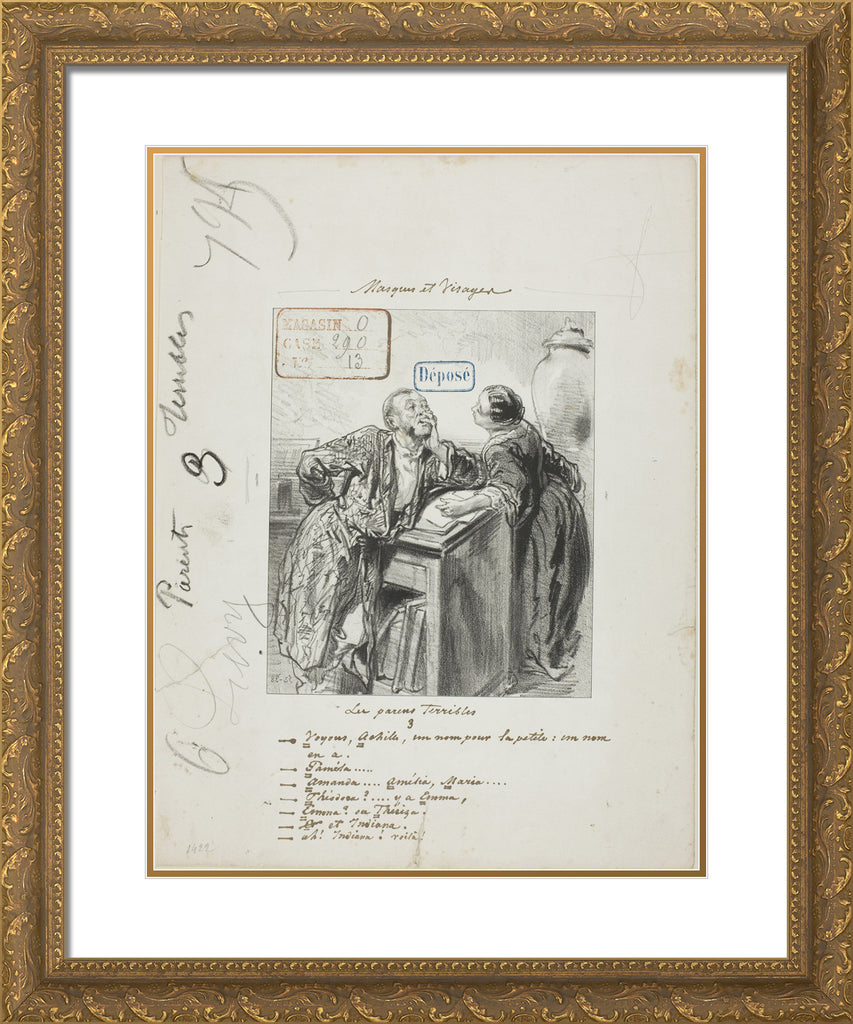 794
Masques et Visages
MAGASIN 0
CASE 290
N° 13
Déposé
Parents 3 Terribles
6
Les parens Terribles
3
— Voyons, Achile, un nom pour la petite : un nom
en a.
— Paméla.....
— Amanda.... Amélia, Maria....
— Théodora ?.... y a Emma,
— Emma ? ou Thériza.
— Et et Indiana.
— ah! Indiana ! voilà !
1422